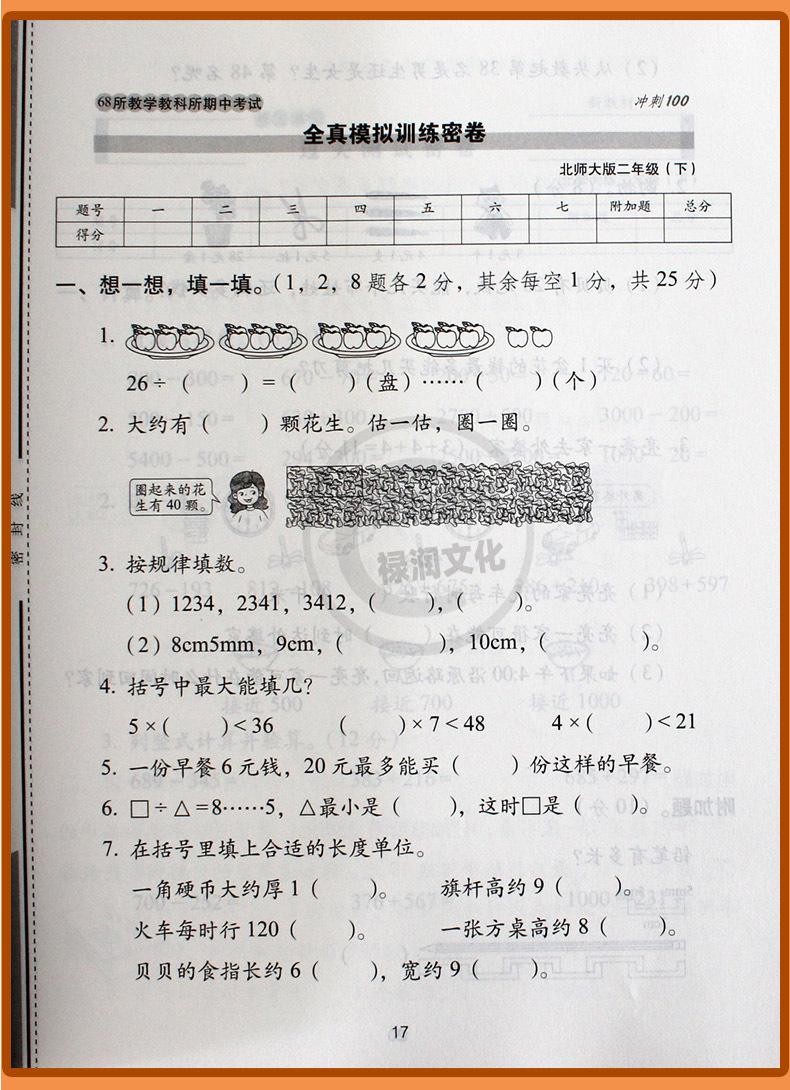 68所教学教科所期中考试
冲刺100
全真模拟训练密卷
北师大版二年级（下）
题号 一 二 三 四 五 六 七 附加题 总分
得分
一、想一想，填一填。（1，2，8题各2分，其余每空1分，共25分）
1.
26÷（ ）=（ ）（盘）……（ ）（个）
2. 大约有（ ）颗花生。估一估，圈一圈。
圈起来的花
生有40颗。
3. 按规律填数。
（1）1234，2341，3412，（ ），（ ）。
（2）8cm5mm，9cm，（ ），10cm，（ ）。
4. 括号中最大能填几？
5×（ ）<36 （ ）×7<48 4×（ ）<21
5. 一份早餐6元钱，20元最多能买（ ）份这样的早餐。
6. □÷△=8……5，△最小是（ ），这时□是（ ）。
7. 在括号里填上合适的长度单位。
一角硬币大约厚1（ ）。 旗杆高约9（ ）。
火车每时行120（ ）。 一张方桌高约8（ ）。
贝贝的食指长约6（ ），宽约9（ ）。
17
密封线
禄润文化